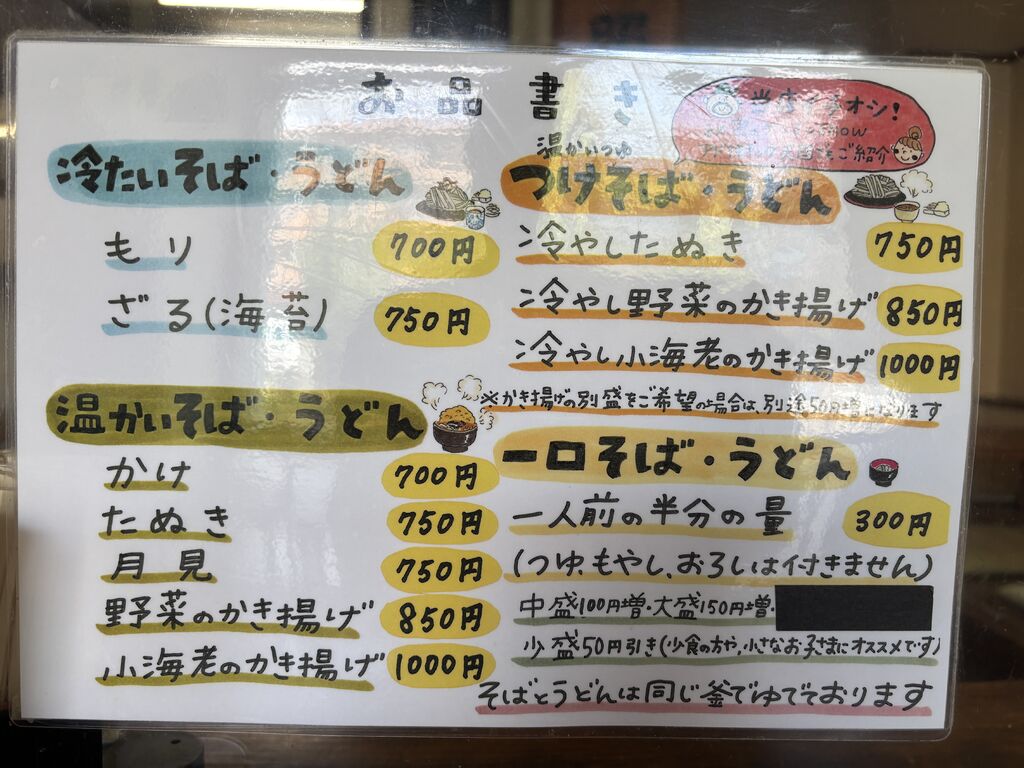 お品書き
冷たいそば・うどん
もり 700円
ざる(海苔) 750円
温かいそば・うどん
かけ 700円
たぬき 750円
月見 750円
野菜のかき揚げ 850円
小海老のかき揚げ 1000円
オシ!
ご紹介
温かいつゆ
つけそば・うどん
冷やしたぬき 750円
冷やし野菜のかき揚げ 850円
冷やし小海老のかき揚げ 1000円
※かき揚げの別盛をご希望の場合は、別途50円増になります
一口そば・うどん
一人前の半分の量 300円
(つゆ、もやし、おろしは付きません)
中盛100円増・大盛150円増・
少盛50円引き(少食の方や、小さなお子さまにオススメです)
そばとうどんは同じ釜でゆでております